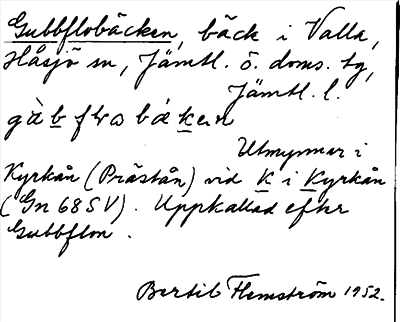 Gubbflobäcken, bäck i Valla,
Håsjö sn, Jämtl. ö. doms. tg,
Jämtl. l.
Utmynnar i
Kyrkån (Prästån) vid K i Kyrkån
(Gn 68 SV). Uppkallad efter
Gubbflon.
Bertil Flemström 1952.